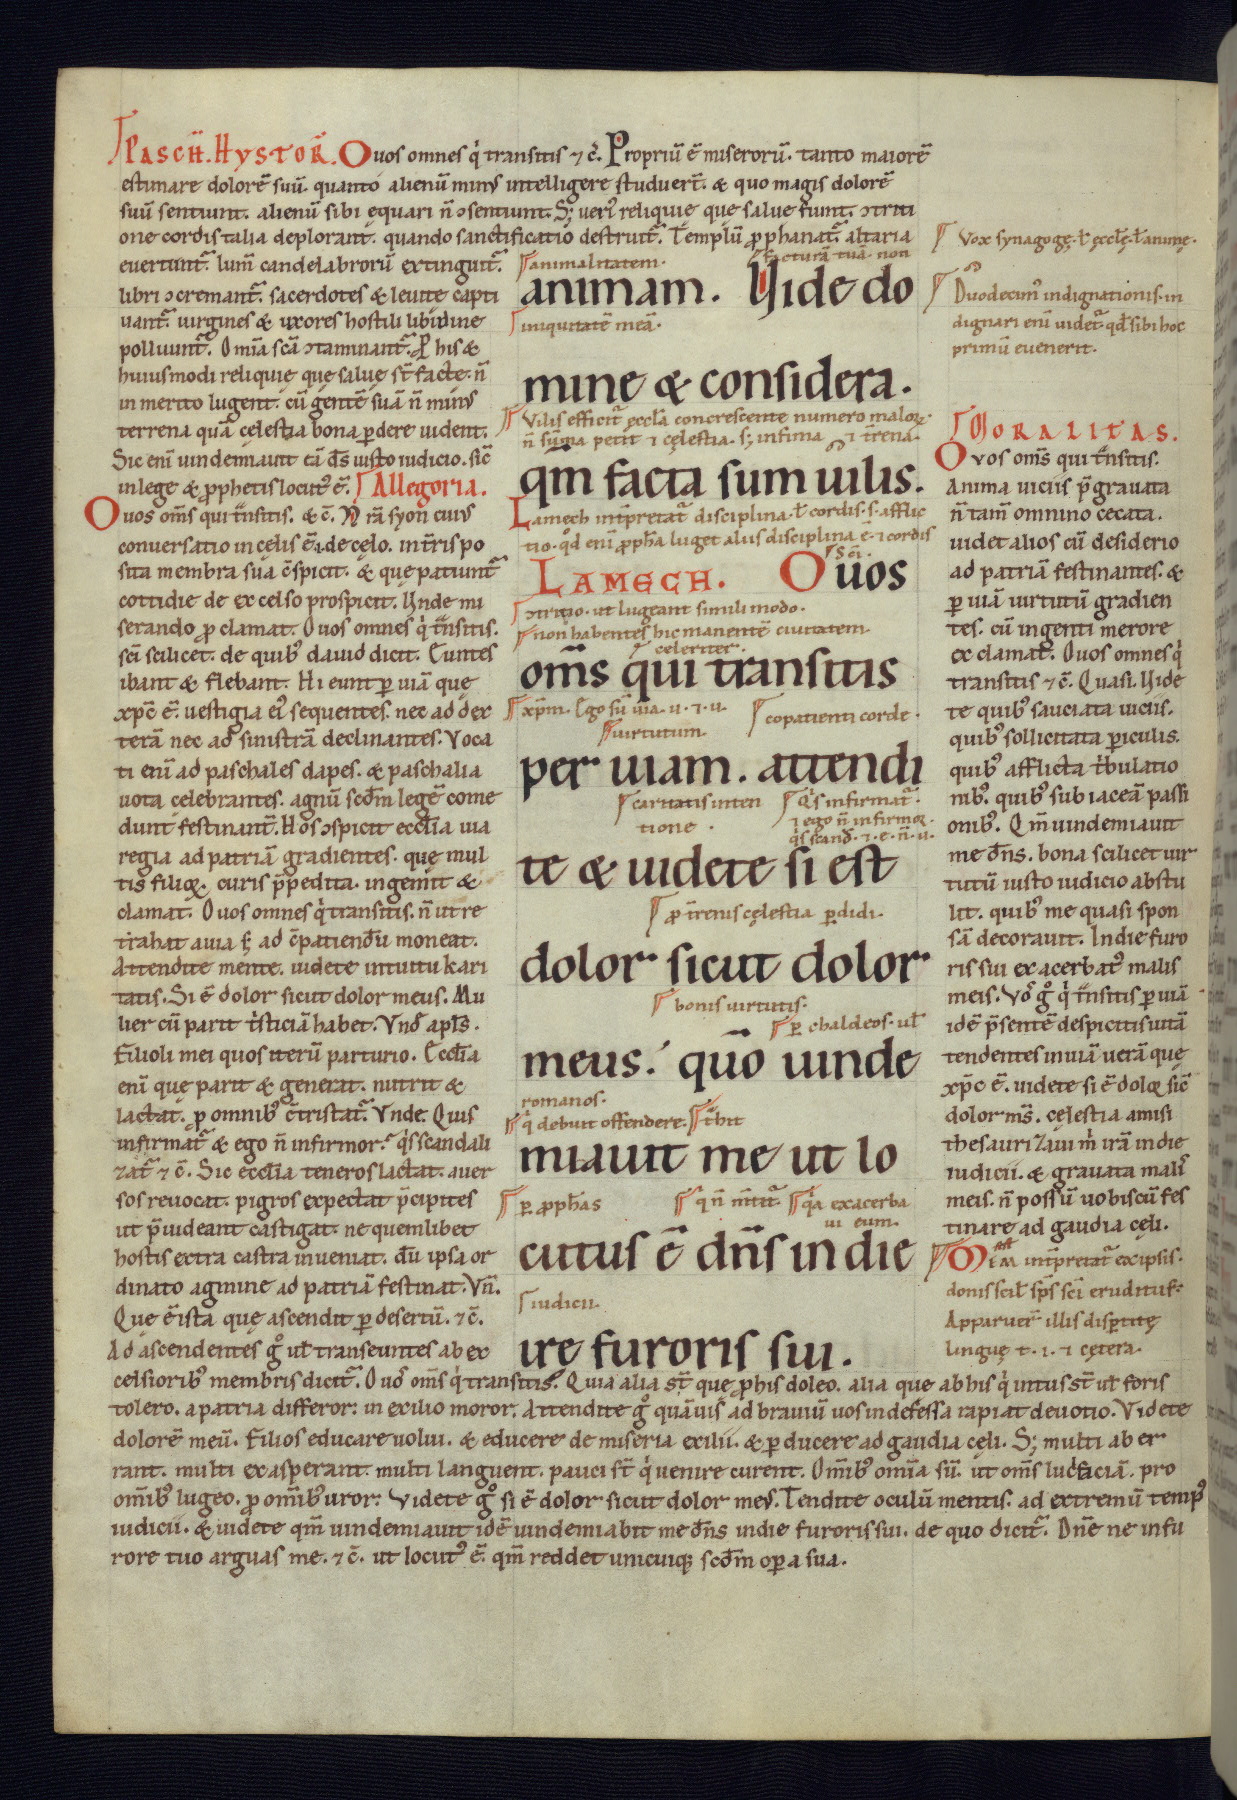 PASCH. HYSTOR. O uos omnes q̍ transitis ⁊ c̄. Propriū ē miserorū. tanto maiorē
estimare dolorē suū. quanto alienū min᷒ intelligere studuer̄t. & quo magis dolorē
suū sentiunt. alienū sibi ęquari n̄ ↄsentiunt. S; uer᷒ reliquię que salue fiunt. ↄtriti
one cordis talia deplorant. quando sanctificatio destruit᷑. Templū ꝓphanat᷑. altaria
euertunt᷑. lum̄ candelabrorū extinguit᷑.
libri ↄcremant᷑. sacerdotes & leuite capti
uant᷑. uirgines & uxores hostili libidine
polluunt᷑. Om̄ia sc̄a ↄtaminant᷑. P̱ his &
huiusmodi reliquię que saluę st̄ facte. n̄
inmerito lugent. cū gentē suā n̄ min᷒
terrena quā cęlestia bona ꝑdere uident.
Sic enī uindemiauit eā d̄s iusto iudicio. sic̄
in lege & ꝓphetis locut᷒ ē. Allegoria.
O uos om̄s qui t̄nsitis. & c̄. N̄ rā syon cui᷒
conuersatio in cęlis ē. de cęlo. in t̄ris po
sita membra sua c̄spicit. & que patiunt᷑
cottidie de excelso prospicit. Unde mi
serando ꝓclamat. O uos omnes q̍ t̄nsitis.
sc̄i scilicet. de quib᷒ dauid dicit. Euntes
ibant & flebant. Hi eunt ꝑ uiā que
xp̄c ē. uestigia ei᷒ sequentes. nec ad dex
terā nec ad sinistrā declinantes. Voca
ti enī ad paschales dapes. & paschalia
uota celebrantes. agnū scd̄m legē come
dunt festinant᷑. Hos ↄspicit eccl̄ia uia
regia ad patriā gradientes. que mul
tis filioꝝ. curis p̄pedita. ingemit &
clamat. O uos omnes q̍ transitis. n̄ ut re
trahat a uia s; ad c̄patiend̄u moneat.
Attendite mente. uidete intuitu kari
tatis. Si ē dolor sicut dolor meus. Mu
lier cū parit t̍sticiā habet. Vnd̄ apl̄s.
Filioli mei quos iterū parturio. Eccl̄ia
enī quę parit & generat. nutrit &
lactat. ꝓ omnib᷒ c̄tristat᷑. Vnde. Quis
infirmat᷑ & ego n̄ infirmor. q̍s scandali
zat᷑ ⁊ c̄. Sic eccl̄ia teneros lactat. auer
sos reuocat. pigros expectat p̄cipites
ut p̄uideant castigat. ne quemlibet
hostis extra castra inueniat. dū ipsa or
dinato agmine ad patriā festinat. Vn̄.
Quę ē ista quę ascendit ꝑ desertū. ⁊ c̄.
Ad ascendentes gͦ ul̄ transeuntes ab ex
celsiorib᷒ membris dicit᷑. O uos om̄s q̍ transitis. Quia alia st̄ que ꝓ his doleo. alia que ab his q̍ intus st̄ ul̄ foris
tolero. a patria differor: in exilio moror. Attendite g̍ quāuis ad brauiū uos indefessa rapiat deuotio. Videte
dolorē meū. Filios educare uolui. & educere de miseria exilii. & ꝑducere ad gaudia cęli. S; multi aber
rant. multi exasperant. multi languent. pauci st̄ q̍ uenire curent. Om̄ib᷒ om̄ia sū. ut om̄s luc̍faciā. pro
om̄ib᷒ lugeo. ꝓ om̄ib᷒ uror: Videte gͦ si ē dolor sicut dolor me᷒. Tendite oculū mentis. ad extremū temp᷒
iudicii. & uidete qm̄ uindemiauit idē uindemiabit me d̄ns indie furoris sui. de quo dicit᷑. Dn̄e ne in fu
rore tuo arguas me. ⁊ c̄. ut locut᷒ ē. qm̄ reddet unicuiq; scd̄m opera sua.
animalitatem. facturā tuā. non
animam. Vide do
iniquitatē meā.
mine & considera.
Vilis efficit᷑ ęccl̄a concrescente numero maloꝝ.
n̄ sum̄a petit ⁊ cęlestia. s; infima ⁊ t̄rena.
qm̄ facta sum uilis.
Lamech int̄pretat᷑ disciplina. ł cordis. s. afflic
tio. qd̄ enī ꝓph̄a luget aliis disciplina ē. ⁊ cordis
LAMECH. O uos
Sc̄i.
ↄtritio. ut lugeant simili modo.
non habentes hic manentē ciuitatem
celeriter.
om̄s qui transitis
xp̄m. Ego sū uia. u. ⁊. u.
uirtutum. copatienti corde.
per uiam. attendi
caritatis inten
tione.
Q̍s infirmat᷑.
⁊ ego n̄ infirmoꝝ.
q̍s scand̄. ⁊. e. n̄. u.
te & uidete si est
ꝓ t̄renis cęlestia ꝑdidi.
dolor sicut dolor
bonis uirtutis.
ꝑ chaldeos. ul̄
meus. qūo uinde
romanos.
q̍ debuit offendere. t̍buit
miauit me ut lo
ꝑ ꝓph̄as q̍ n̄ m̄tit᷑ q̍a exacerba
ui eum.
cutus ē dn̄s in die
iudicii.
irę furoris sui.
Vox synagogę. ł ęccl̄ę. ł animę.
Duodecim᷒ indignationis. in
dignari enī uidet᷑ qd̄ sibi hoc
primū euenerit.
MORALITAS.
O uos om̄s qui t̄nsitis.
Anima uiciis p̄grauata
n̄ tam̄ omnino cecata.
uidet alios cū desiderio
ad patriā festinantes. &
ꝑ uiā uirtutū gradien
tes. cū ingenti merore
exclamat. O uos omnes q̍
transitis ⁊ c̄. Quasi. Uide
te quib᷒ sauciata uiciis.
quib᷒ sollicitata ꝑiculis.
quib᷒ afflicta t̍bulatio
nib᷒. quib᷒ subiaceā passi
onib᷒. Qm̄ uindemiauit
me d̄ns. bona scilicet uir
tutū iusto iudicio abstu
lit. quib᷒ me quasi spon
sā decorauit. In die furo
ris sui exacerbat᷒ malis
meis. Vos gͦ q̍ t̄nsitis ꝑ uiā
idē p̄sentē despicitis uitā
tendentes in uiā uerā quę
xp̄c ē. uidete si ē dolor sic̄
dolor ms̄. cęlestia amisi
thesaurizaui m̍ irā in die
iudicii. & grauata mal᷒
meis. n̄ possū uobiscū fes
tinare ad gaudia cęli.
MEM int̄pretat᷑ ex ipsis.
donis scil̄ sp̄s sc̄i eruditus.
Apparuer̄ illis disꝑtitę
linguę t. i. ⁊ cętera.